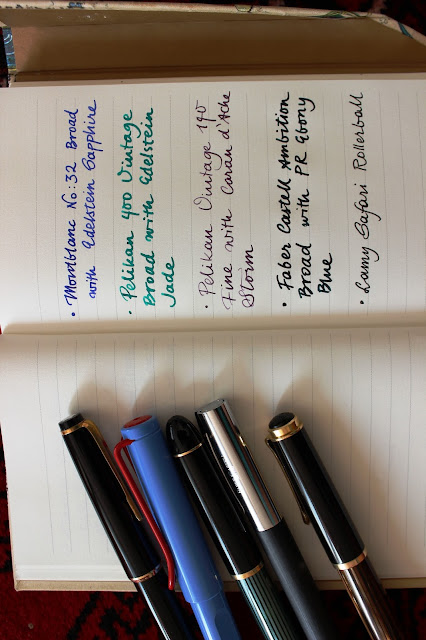 • Montblanc No:32 Broad
with Edelstein Sapphire
• Pelikan 400 Vintage
Broad with Edelstein
Jade
• Pelikan Vintage 140
Fine with Caran d'Ache
Storm
• Faber Castell Ambition
Broad with PR Ebony
Blue
• Lamy Safari Rollerball